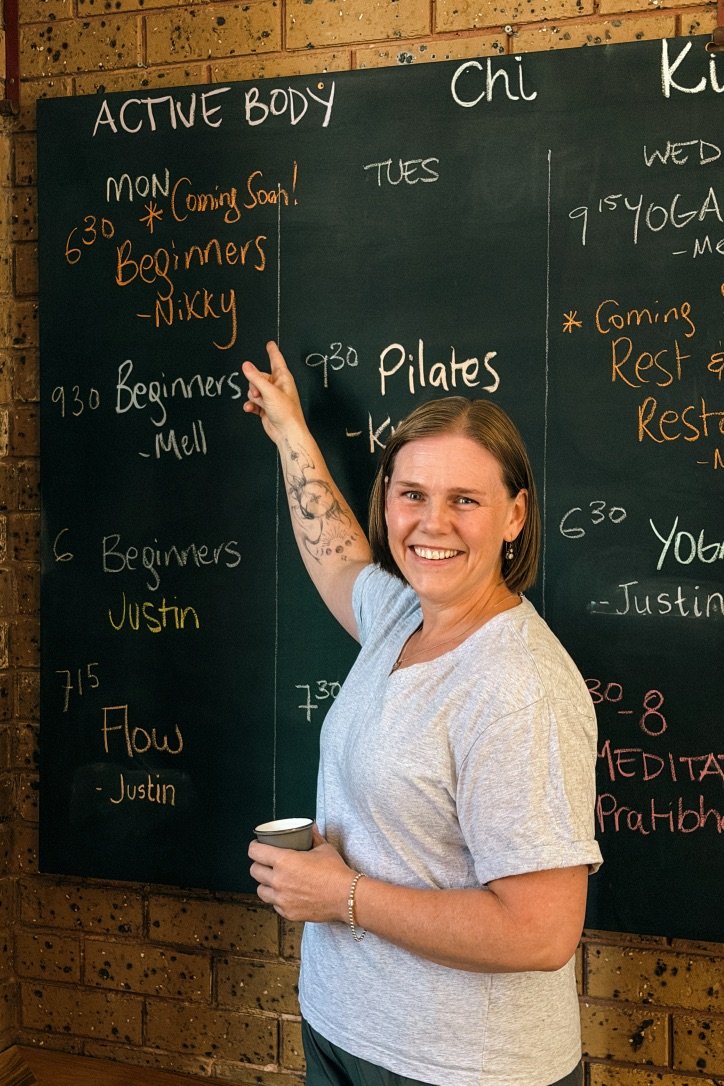 ACTIVE BODY Chi
MON
* Coming Soon!
6 30
Beginners
- Nikky
9 30 Beginners
- Mell
6 Beginners
Justin
7 15
Flow
- Justin
TUES
9 30 Pilates
7 30
WED
9 15 YOGA
* Coming
Rest &
6 30
- Justin
30 - 8